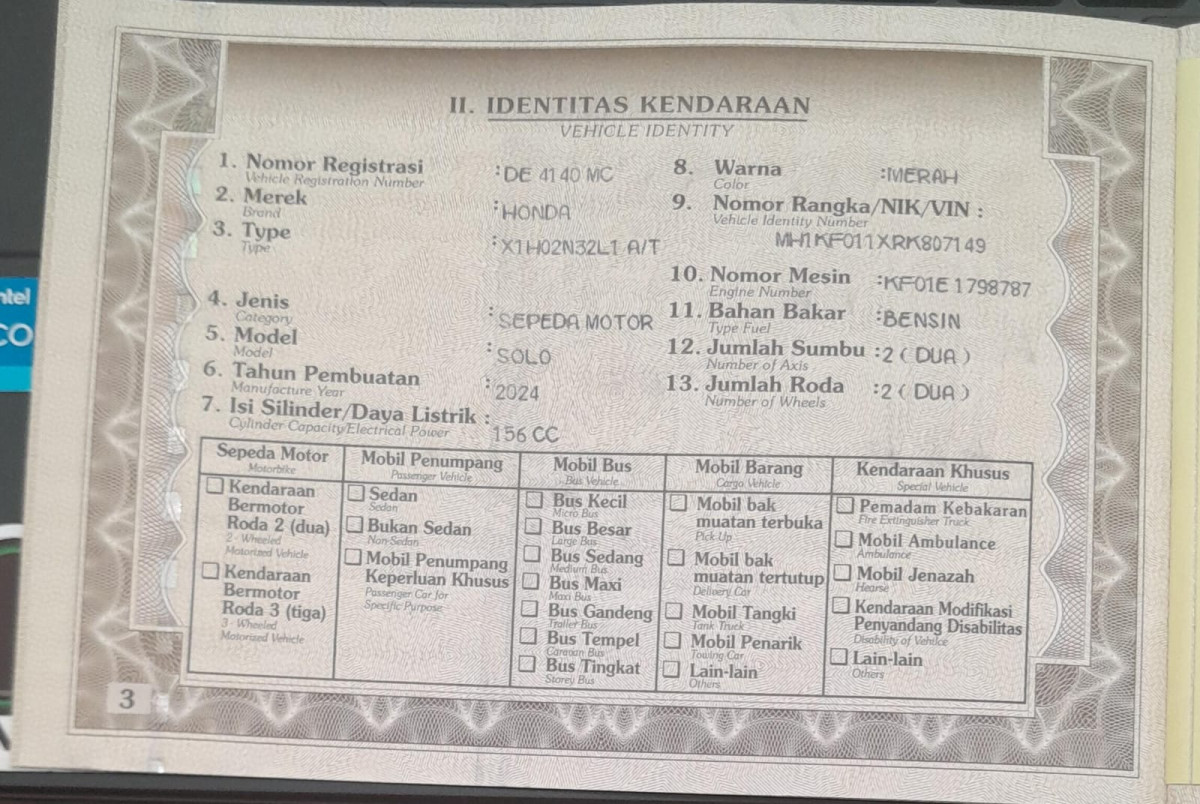 II. IDENTITAS KENDARAAN
VEHICLE IDENTITY
1. Nomor Registrasi : DE 4140 MC
Vehicle Registration Number
2. Merek : HONDA
Brand
3. Type : X1H02N32L1 A/T
Type
4. Jenis : SEPEDA MOTOR
Category
5. Model : SOLO
Model
6. Tahun Pembuatan : 2024
Manufacture Year
7. Isi Silinder/Daya Listrik : 156 CC
Cylinder Capacity/Electrical Power
8. Warna : MERAH
Color
9. Nomor Rangka/NIK/VIN :
Vehicle Identity Number
MH1KF011XRK807149
10. Nomor Mesin : KF01E 1798787
Engine Number
11. Bahan Bakar : BENSIN
Type Fuel
12. Jumlah Sumbu : 2 ( DUA )
Number of Axis
13. Jumlah Roda : 2 ( DUA )
Number of Wheels
Sepeda Motor
Motorbike
Kendaraan
Bermotor
Roda 2 (dua)
2 - Wheeled
Motorized Vehicle
Kendaraan
Bermotor
Roda 3 (tiga)
3 - Wheeled
Motorized Vehicle
Mobil Penumpang
Passenger Vehicle
Sedan
Sedan
Bukan Sedan
Non Sedan
Mobil Penumpang
Keperluan Khusus
Passenger Car for
Specific Purpose
Mobil Bus
Bus Vehicle
Bus Kecil
Micro Bus
Bus Besar
Large Bus
Bus Sedang
Medium Bus
Bus Maxi
Maxi Bus
Bus Gandeng
Trailer Bus
Bus Tempel
Caravan Bus
Bus Tingkat
Storey Bus
Mobil Barang
Cargo Vehicle
Mobil bak
muatan terbuka
Pick Up
Mobil bak
muatan tertutup
Delivery Car
Mobil Tangki
Tank Truck
Mobil Penarik
Towing Car
Lain-lain
Others
Kendaraan Khusus
Special Vehicle
Pemadam Kebakaran
Fire Extinguisher Truck
Mobil Ambulance
Ambulance
Mobil Jenazah
Hearse
Kendaraan Modifikasi
Penyandang Disabilitas
Disability of Vehilce
Lain-lain
Others
3